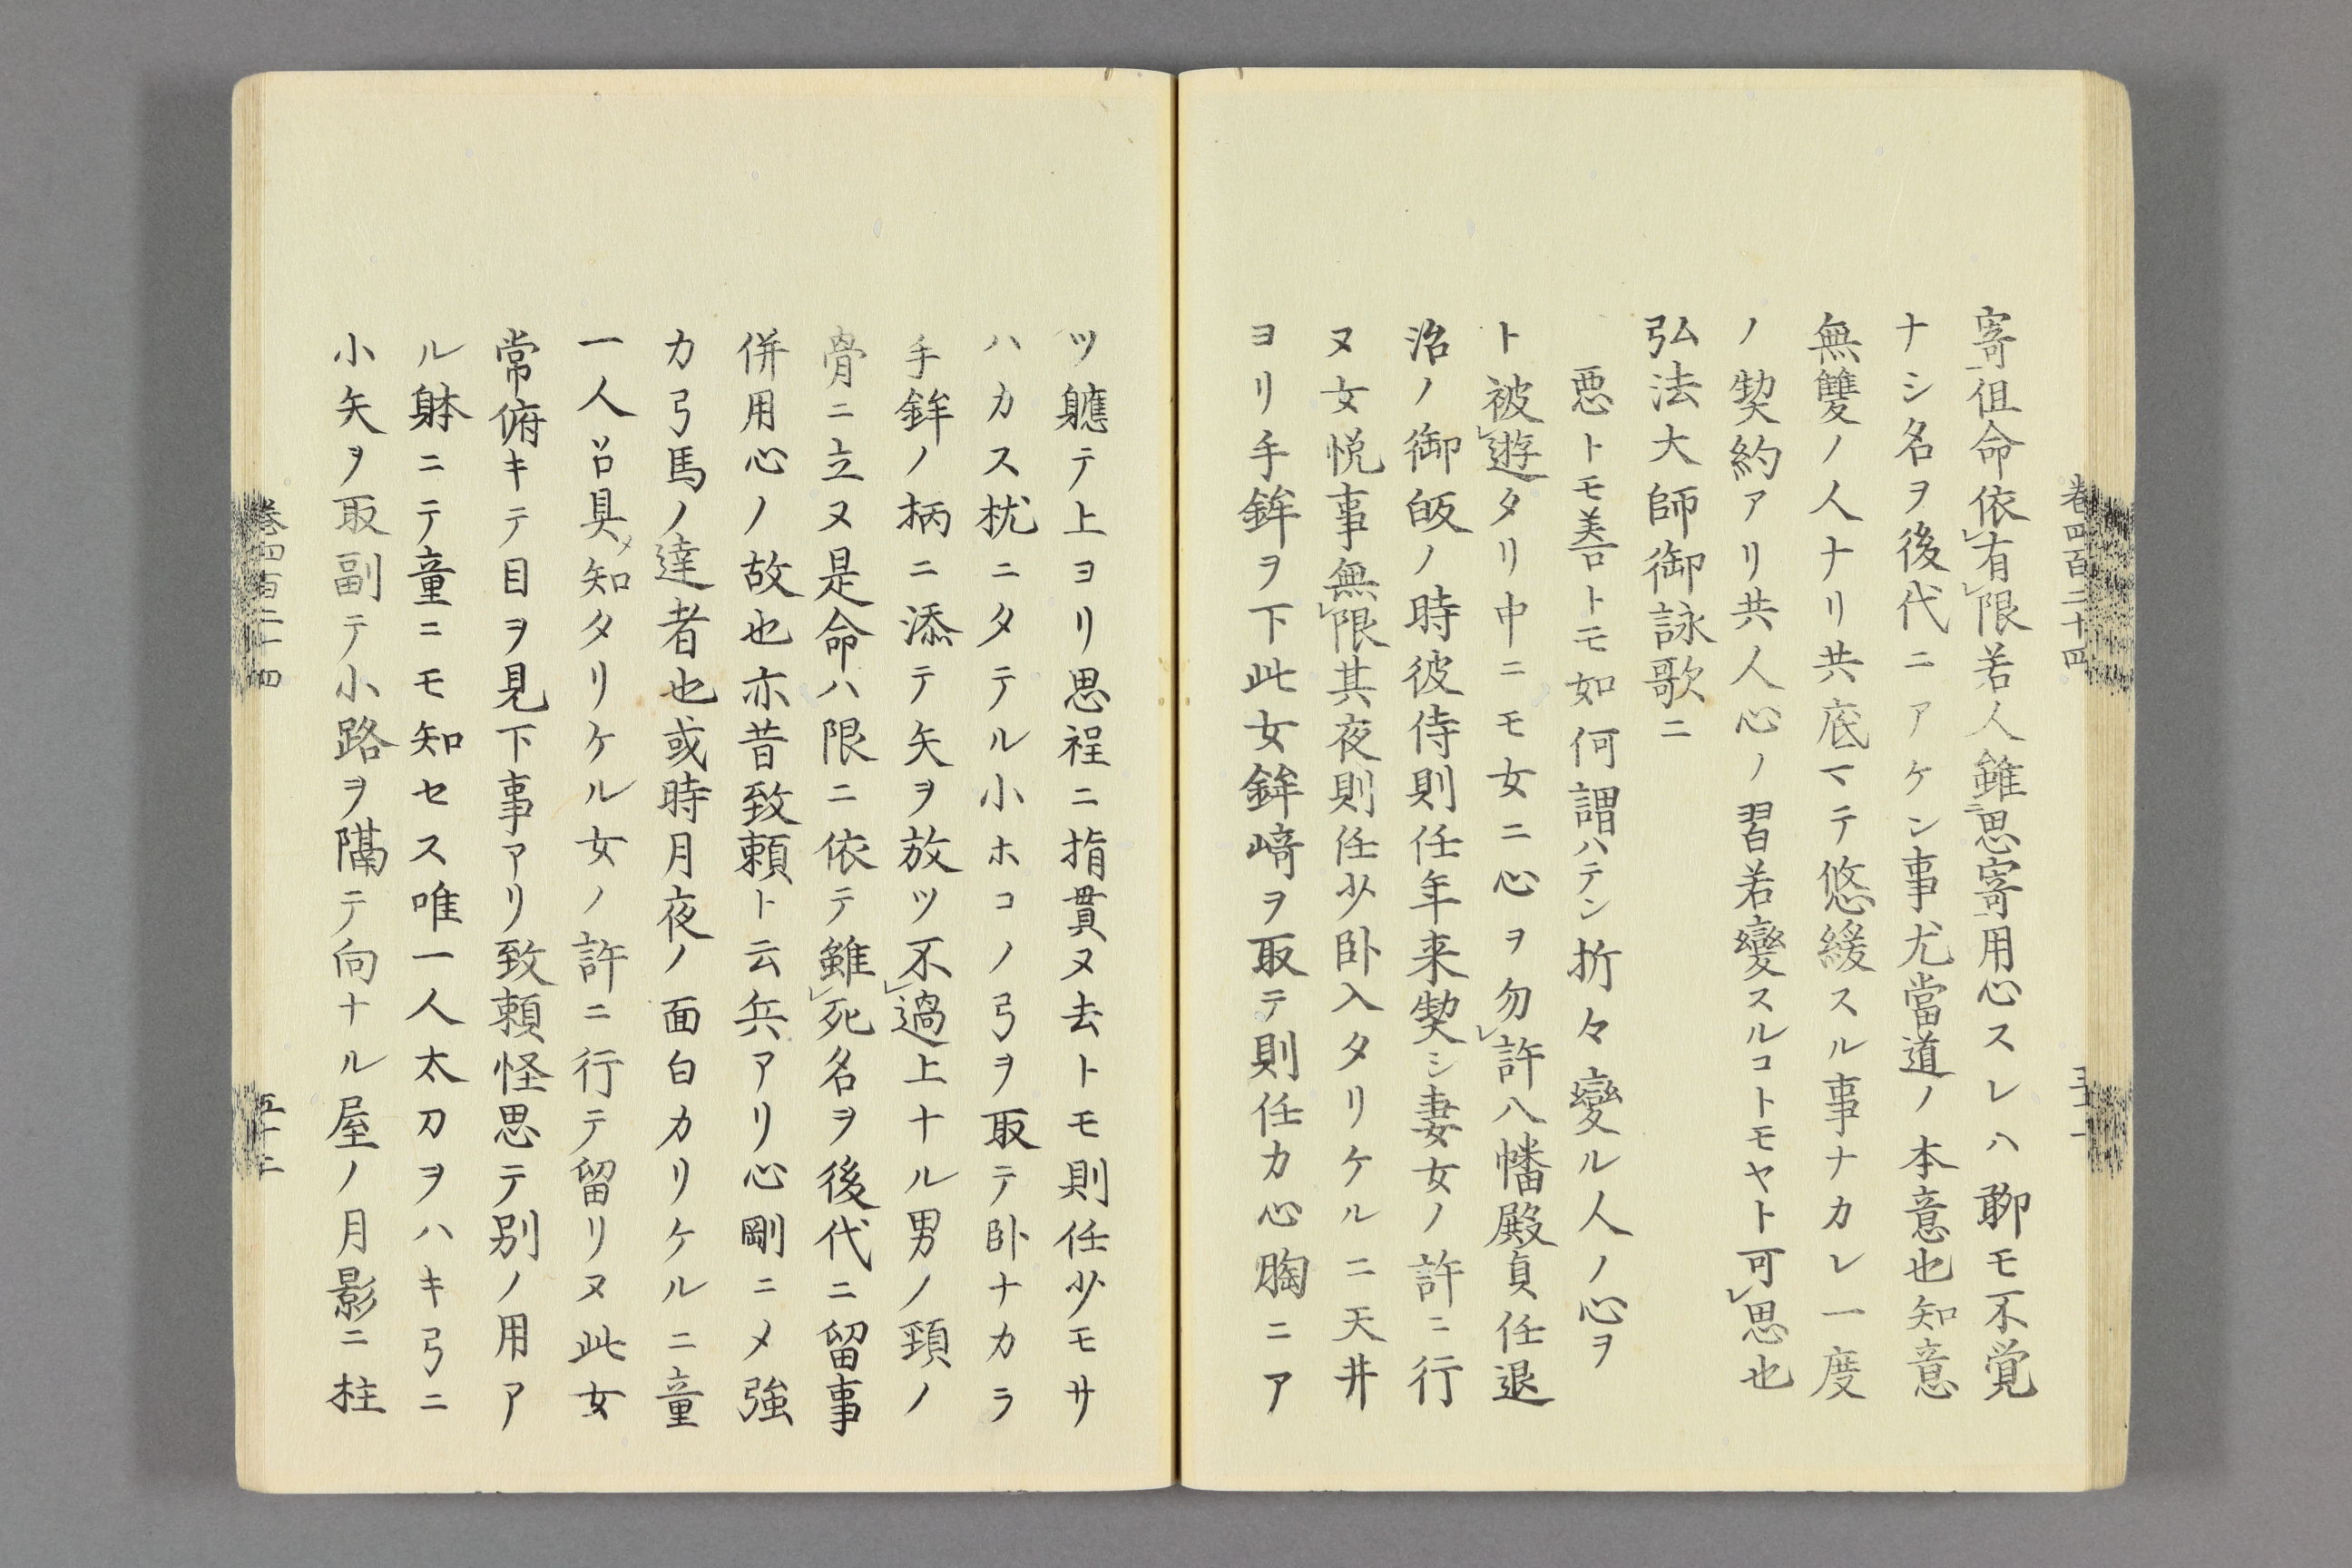 巻四百二十四
寄徂命依有限若人雖思寄用心スレハ聊モ不覚
ナシ名ヲ後代ニアケン事尤當道ノ本意也知意
無雙ノ人ナリ共底マテ悠緩スル事ナカレ一度
ノ契約アリ共人心ノ習若變スルコトモヤト可思也
弘法大師御詠歌ニ
悪トモ善トモ如何謂ハテン折々變ル人ノ心ヲ
ト被遊タリ中ニモ女ニ心ヲ勿許八幡殿貞任退
治ノ御皈ノ時彼侍則任年来契シ妻女ノ許ニ行
ヌ女悦事無限其夜則任少卧入タリケルニ天井
ヨリ手鉾ヲ下此女鉾﨑ヲ取テ則任カ心胸ニア
ツ軈テ上ヨリ思程ニ指貫ヌ去トモ則任少モサ
ハカス枕ニタテル小ホコノ弓ヲ取テ卧ナカラ
手鉾ノ柄ニ添テ矢ヲ放ツ不過上ナル男ノ頸ノ
骨ニ立ヌ是命ハ限ニ依テ雖死名ヲ後代ニ留事
併用心ノ故也亦昔致頼ト云兵アリ心剛ニメ強
カ弓馬ノ達者也或時月夜ノ面白カリケルニ童
一人召具メ知タリケル女ノ許ニ行テ留リヌ此女
常俯キテ目ヲ見下事アリ致頼怪思テ別ノ用ア
ル躰ニテ童ニモ知セス唯一人太刀ヲハキ弓ニ
小矢ヲ取副テ小路ヲ隔テ向ナル屋ノ月影ニ柱
巻四百二十四
五十二